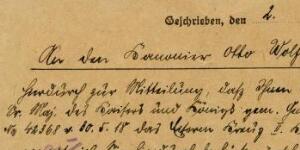 Geschrieben, den 2.
An den Kanonier Otto Wolf
Hierdurch zur Mitteilung, daß Ihnen
Sr. Maj. des Kaisers und Königs gem.
No 42361 v. 30. 5. 18 das Eiserne Kreuz II.